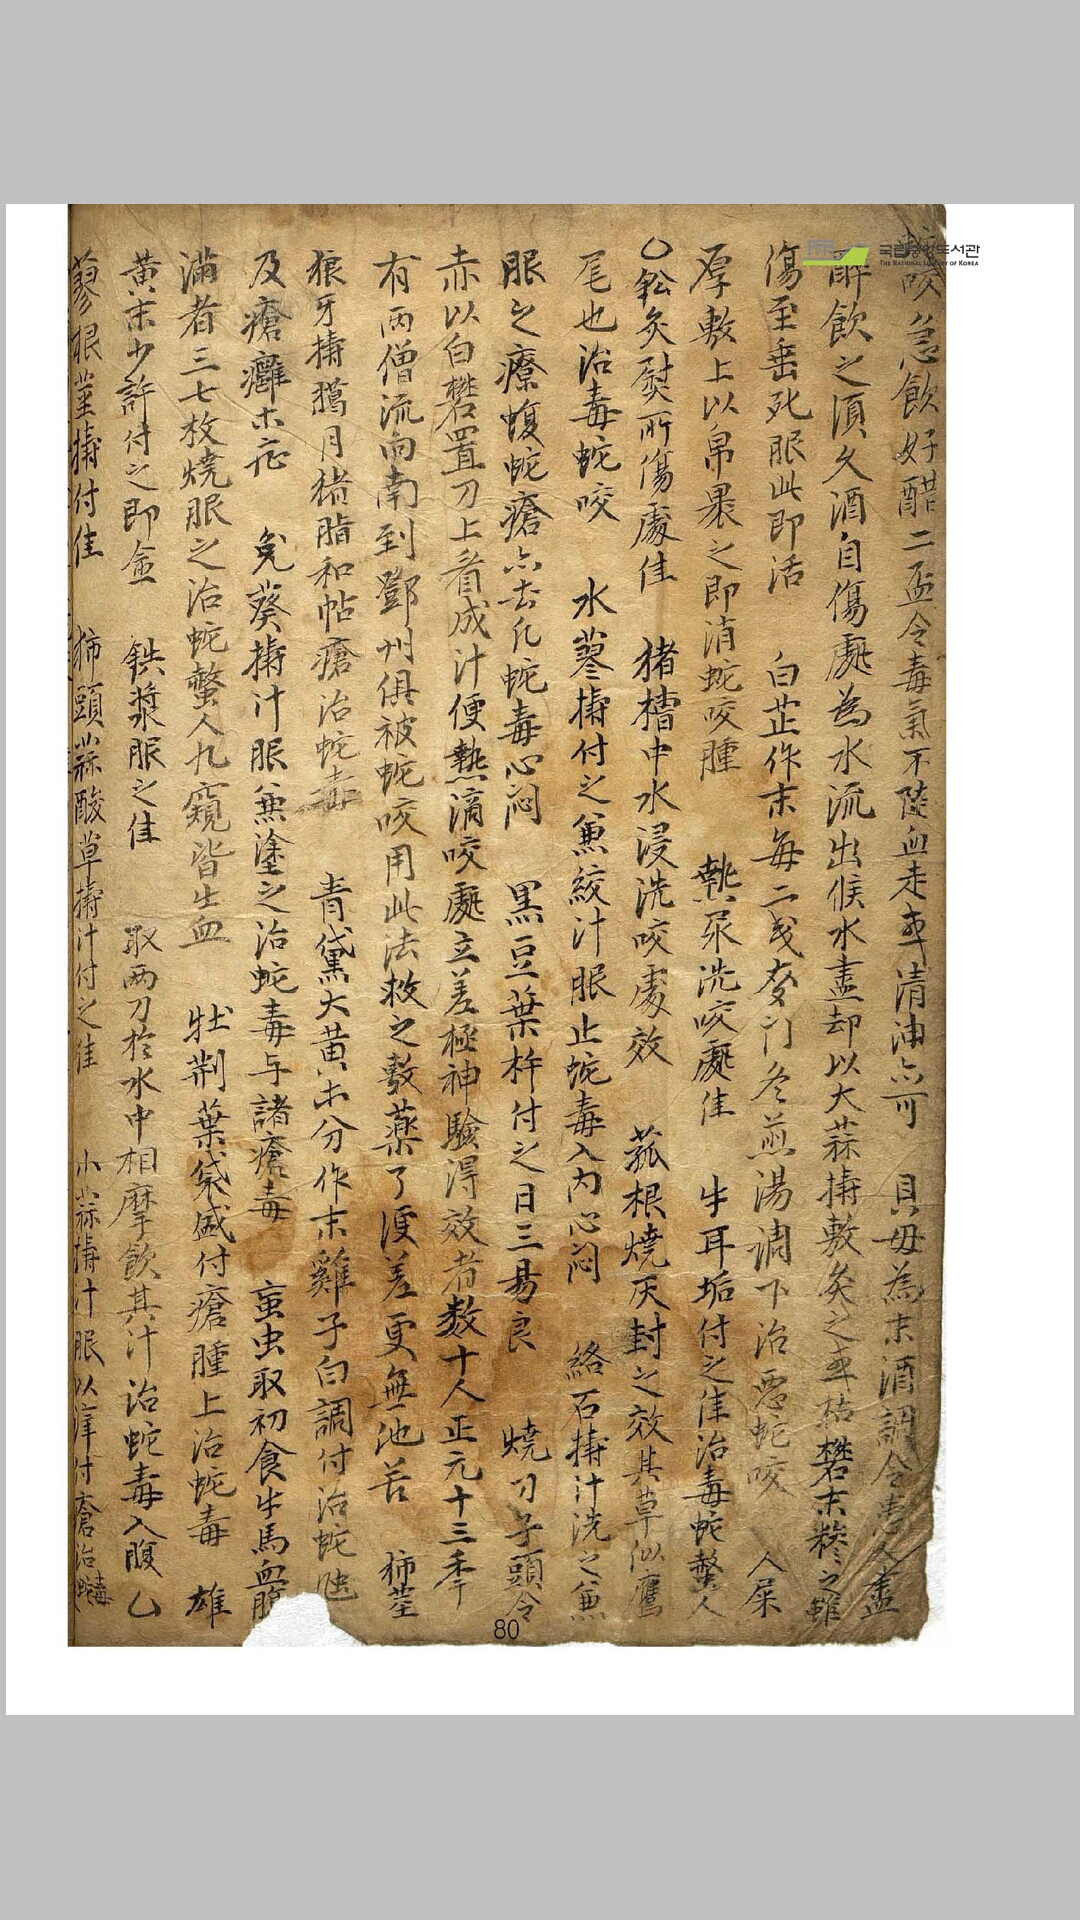 蛇咬急飮好醋二盃令毒氣不随血走車淸油亦可 貝母為末酒調令患人盡
醉飮之湏久酒自傷處為水流出候水盡却以大蒜搗敷灸之車枯礬末糝之雖
傷至垂死服此即活 白芷作末每二戔麥門冬煎湯調下治惡蛇咬 人屎
厚敷上以帛裹之即消蛇咬腫 熱尿洗咬處佳 牛耳垢付之佳治毒蛇螫人
〇灸熨所傷處佳 猪槽中水浸洗咬處效 菰根燒灰封之效其草似鷹
尾也治毒蛇咬 水蓼搗付之兼絞汁服止蛇毒入內心闷 絡石搗汁洗之兼
服之療蝮蛇瘡亦去凡蛇毒心闷 黑豆葉杵付之日三易良 燒刀子頭令
赤以白礬置刀上看成汁便熱滴咬處立差極神驗得效者数十人正元十三季
有两僧流向南到鄧州俱被蛇咬用此法救之敷藥了便差更無他苦 茎
狼牙搗臈月猪脂和帖瘡治蛇毒 青黛大黄木分作末雞子白調付治蛇
及瘡癰木症 兔葵搗汁服兼塗之治蛇毒与諸瘡毒 䖟虫取初食牛馬血
滿者三七枚燒服之治蛇螫人九窺皆出血 牡荆葉袋盛付瘡腫上治蛇毒 雄
黄末少許付之即 鉄漿服之佳 取两刀於水中相摩飮其汁治蛇毒入腹
蓼根茎搗付佳 頭蒜酸草搗汁付之佳 小蒜搗汁服以滓付瘡治
국립중앙도서관
THE NATIONAL LIBRARY OF KOREA
80